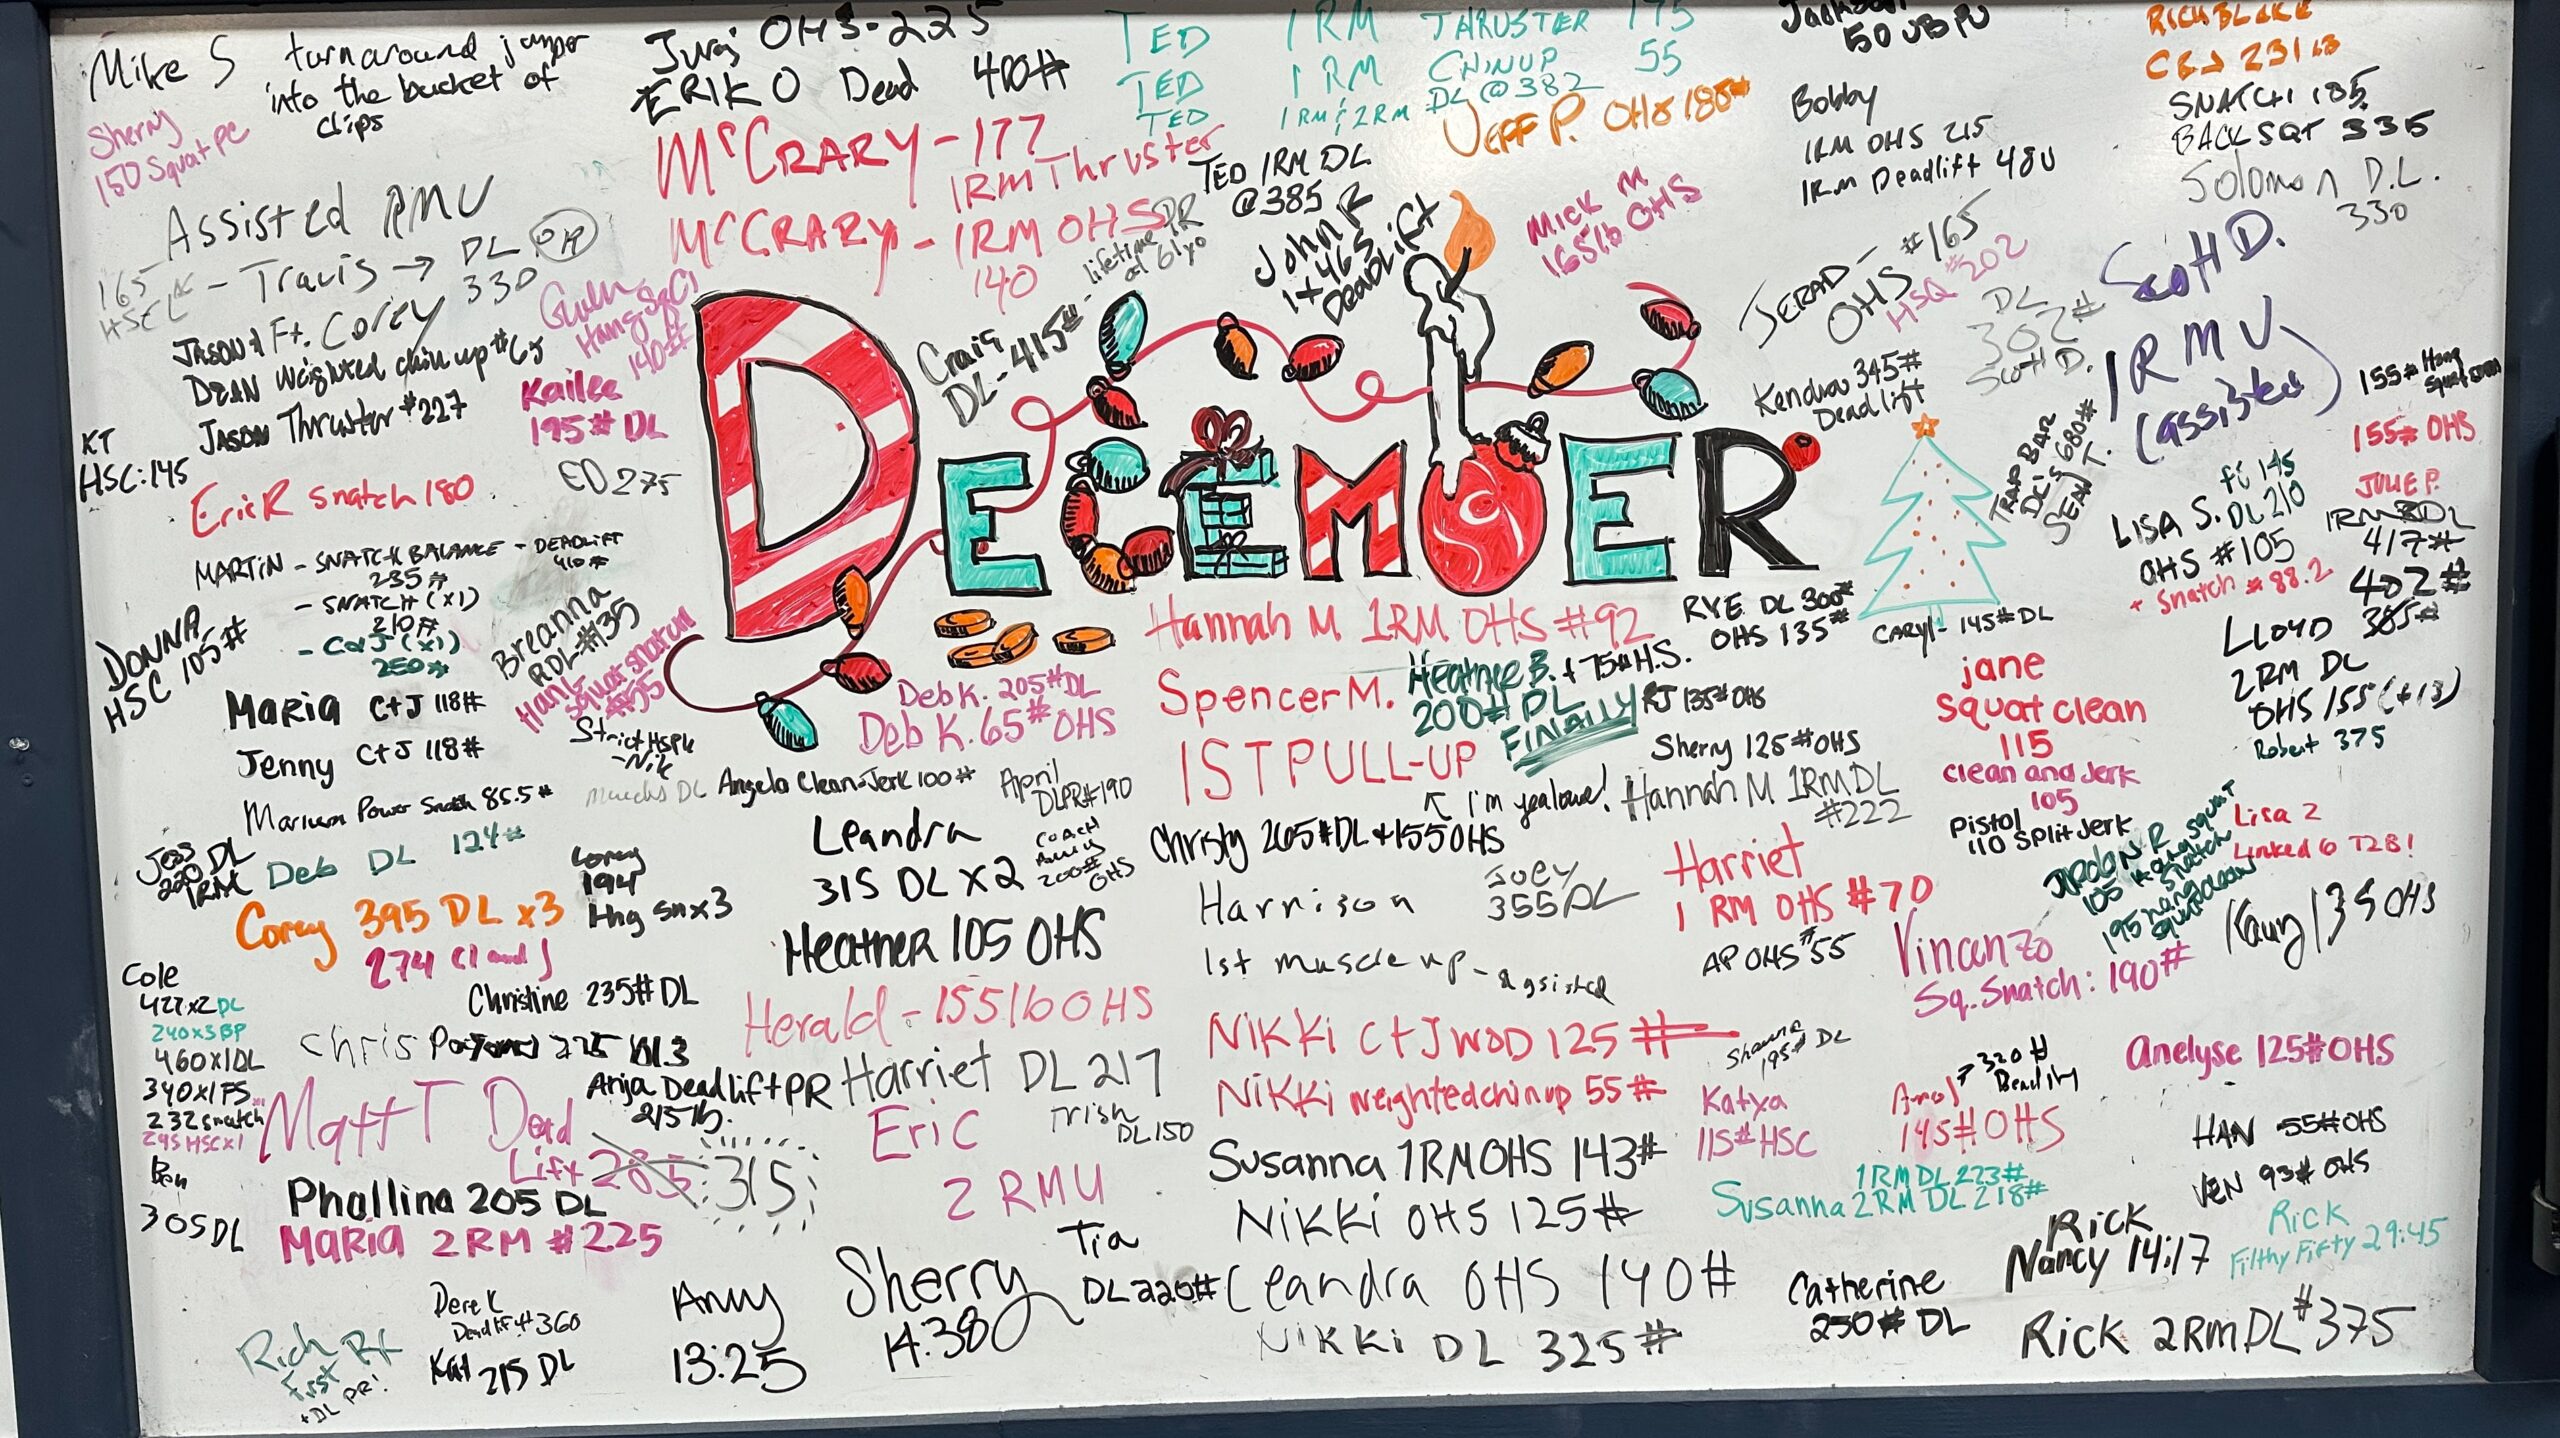 Mike S turnaround jumper
into the bucket of
clips
Sherry
150 Squat PC
Juraj OHS-225
ERIK O Dead 400#
McCRARY - 177
1RM Thruster
McCRARY - 1RM OHS
140
lifetime PR
at 61yo
TED 1RM THRUSTER 175
TED 1RM CHINUP 55
TED 1RM & 2RM DL @ 382
JEFF P. OHS 180#
TED 1RM DL
@385
John F
1x465
DEADLIFT
Mick M
165lb OHS
Jackson
50 UB PU
Bobby
1RM OHS 215
1RM Deadlift 480
RICH BLAKE
C&J 231 lb
SNATCH 185
BACK SQT 335
Solomon D.L.
330
Assisted RMU
165
HSC
- Travis → DL PR
330
Ft. Corey
JASON
DEAN Weighted chin up #65
JASON Thruster #227
Hang SqCl
140#
Kailee
195# DL
ED 275
KT
HSC: 145
Eric R Snatch 180
Craig
DL - 415#
DECEMBER
JERAD -
OHS #165
HSQ #202
DL
302#
Scott D.
Kendra 345#
Deadlift
Scott D.
1RMU
(assisted)
TRAP BAR
DL's 680#
SEAN T.
155# Hang
155# OHS
JULIE P.
1RM DL
417#
402#
385#
LISA S. DL 210
OHS #105
+ Snatch #88.2
LLOYD
2RM DL
OHS 155 (+13)
Robert 375
MARTIN - SNATCH BALANCE - DEADLIFT
235# 410#
- SNATCH (X1)
210#
- C&J (X1)
250#
DONNA
HSC 105#
Breanna
RDL #135
Hank
squat snatch
#95
Strict HSPU
- Nik
Maria C+J 118#
Jenny C+J 118#
Marium Power Snatch 85.5#
Jess
220 DL
1RM
Deb DL 124#
Corey 395 DL x3
274 Cl and J
Corey
194
Hng sn x3
Deb K. 205# DL
Deb K. 65# OHS
Angela Clean+Jerk 100#
April
DL PR #190
Leandra
315 DL X2
COACH
200#
OHS
Heather 105 OHS
Herald - 155 lb OHS
Harriet DL 217
Trish
DL 150
Eric
2 RMU
Hannah M 1RM OHS #92
Spencer M.
1ST PULL-UP
Heather B. + 75# H.S.
200# DL
FINALLY
RYE DL 300#
OHS 135#
RJ 135# OHS
CARYL - 145# DL
Sherry 125# OHS
I'm yealous!
Hannah M 1RM DL
#222
Christy 205# DL + 155 OHS
Joey
355 DL
Harrison
1st muscle up - assisted
Harriet
1 RM OHS #70
AP OHS #55
jane
squat clean
115
clean and Jerk
105
Pistol
110 Split Jerk
Jordan R
105 Hang squat
snatch
195 hang
squat clean
Lisa 2
Linked 6 T2B!
135 OHS
Vincenzo
Sq. Snatch: 190#
Cole
422x2 DL
240x3 BP
460x1 DL
340x1 FS
232 snatch
295 HSC x1
Ben
305 DL
Christine 235# DL
Chris
Anja Deadlift PR
215 lb.
Matt T Dead
Lift 285 315
Phallina 205 DL
Maria 2RM #225
Nikki C+J WOD 125#
Nikki weighted chin up 55#
Shawna
195# DL
Susanna 1RM OHS 143#
Katya
115# HSC
320#
Deadlift
145# OHS
Anelyse 125# OHS
1RM DL 223#
Susanna 2RM DL 218#
HAN 55# OHS
VEN 93# OHS
Nikki OHS 125#
Leandra OHS 140#
Nikki DL 325#
Tia
DL 220#
Sherry
14:38
Amy
13:25
Derek
Deadlift #360
Kat 215 DL
Rich RX
First
+ DL PR!
Catherine
250# DL
Rick
Nancy 14:17
Rick
Filthy Fifty 29:45
Rick 2RM DL #375